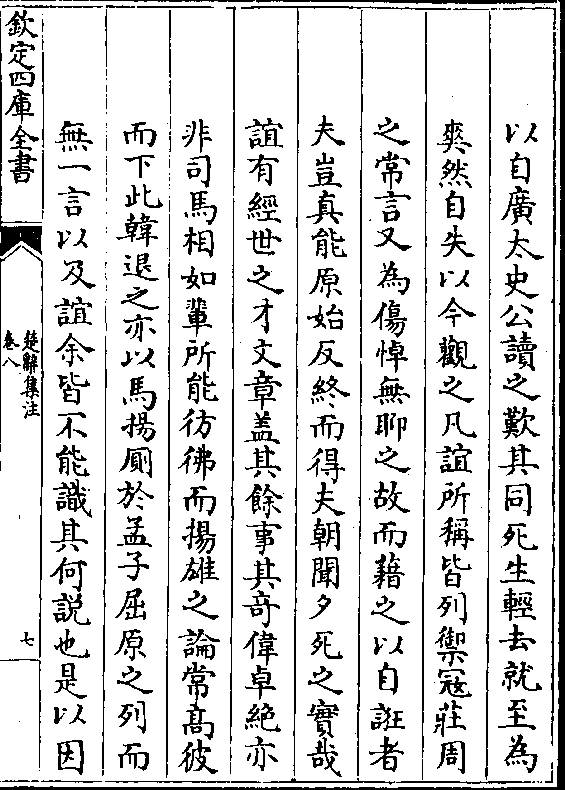 以自廣太史公讀之歎其同死生輕去就至為
爽然自失以今觀之凡誼所稱皆列禦寇莊周
之常言又為傷悼無聊之故而藉之以自誑者
夫豈真能原始反終而得夫朝聞夕死之實哉
誼有經世之才文章蓋其餘事其竒偉卓絶亦
非司馬相如輩所能彷彿而揚雄之論常髙彼
而下此韓退之亦以馬揚厠於孟子屈原之列而
無一言以及誼余皆不能識其何説也是以因
欽定四庫全書
楚辭集注
卷八
七